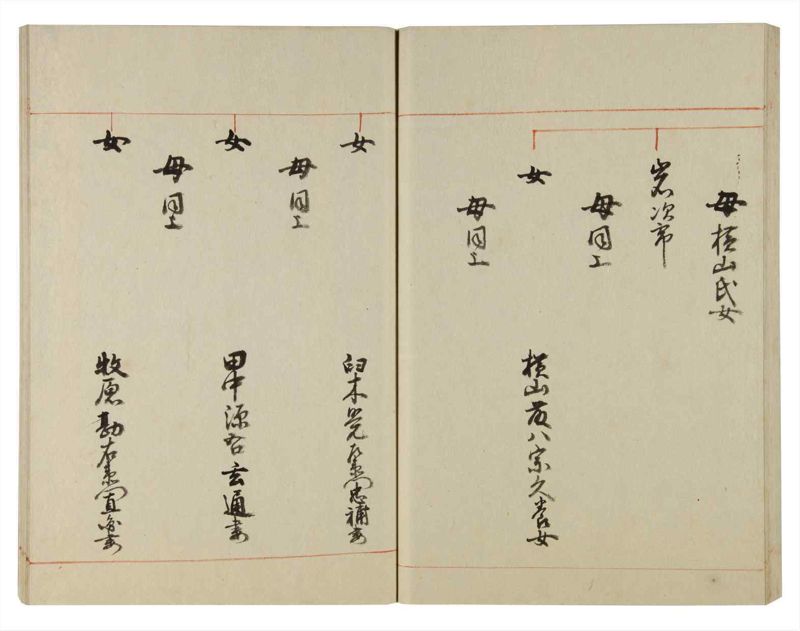 母横山氏女
岩次郎
母同上
女
横山友八宗久養女
母同上
女
臼木覚左衛門忠補妻
母同上
女
田中源吾玄通妻
母同上
女
牧原勘右衛門直妻